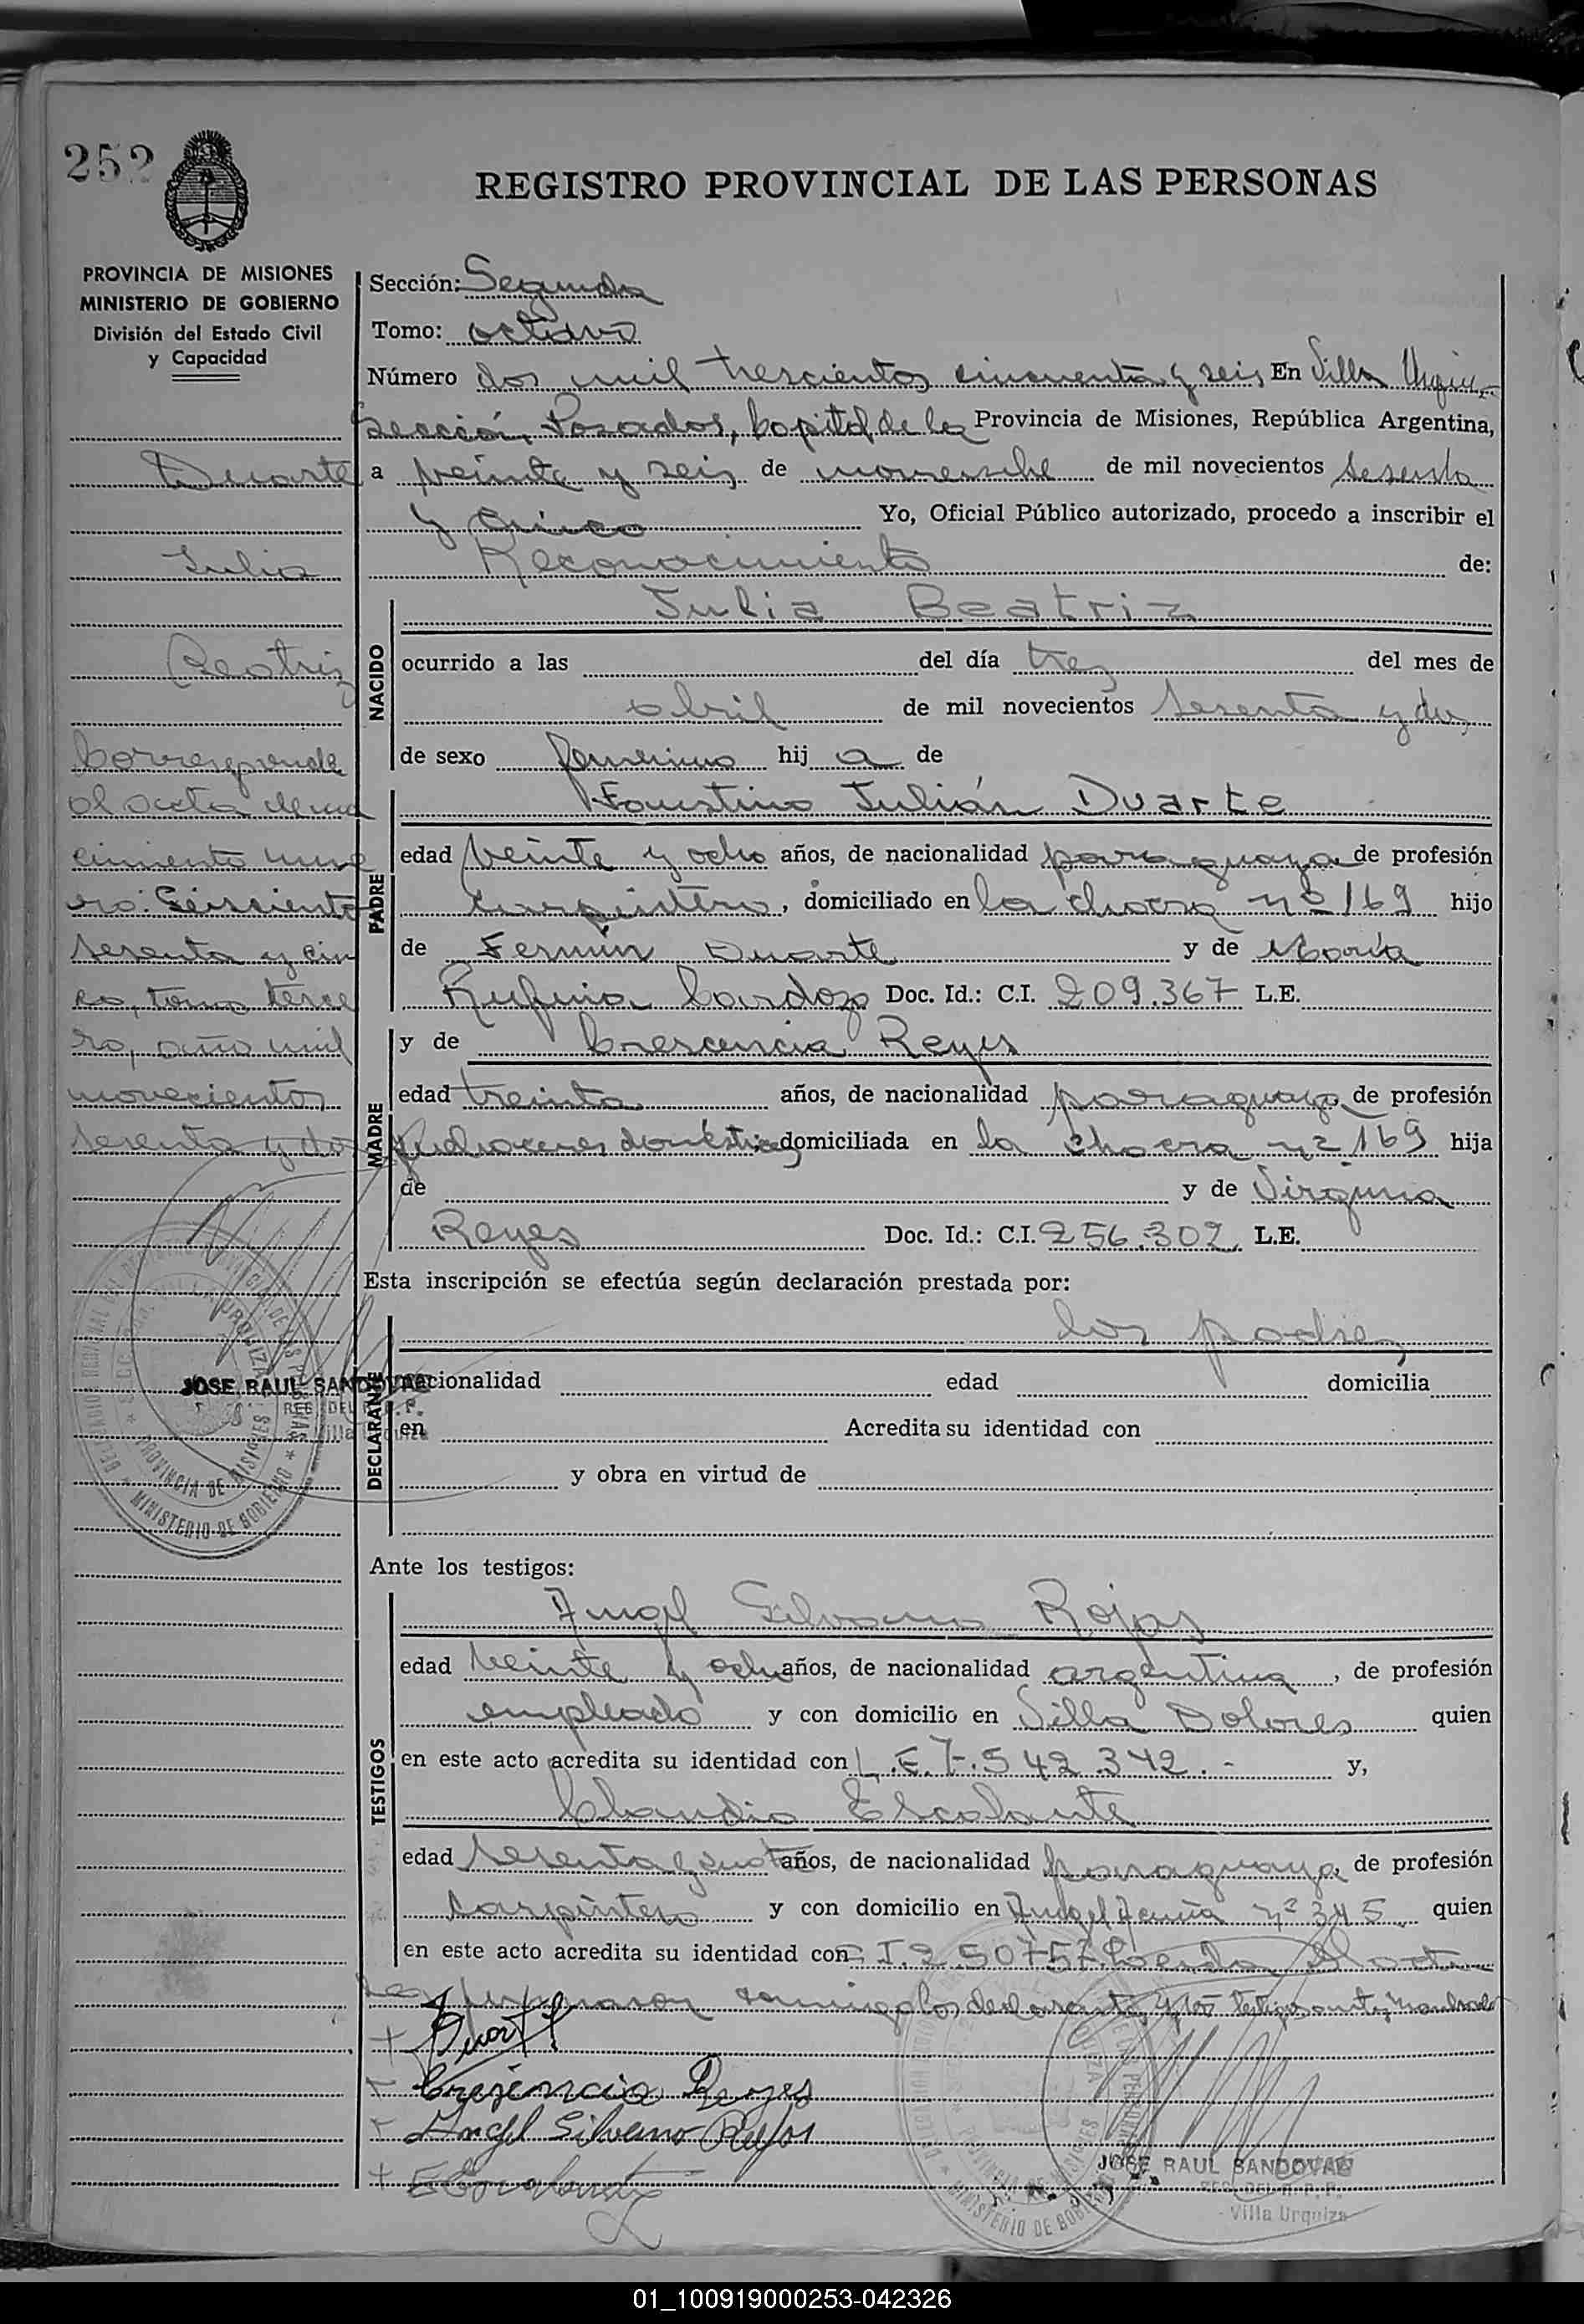 252
REGISTRO PROVINCIAL DE LAS PERSONAS
PROVINCIA DE MISIONES
MINISTERIO DE GOBIERNO
División del Estado Civil
y Capacidad
Duarte
Julia
Beatriz
Corresponde
al acta de na
cimiento nume
ro: Seiscientos
sesenta y cin
co, tomo terce
ro, año mil
novecientos
sesenta y dos
Sección: Segunda
Tomo: octavo
Número dos mil trescientos cincuenta y seis En Villa Urqui
Sección Posadas, Capital de la Provincia de Misiones, República Argentina,
a veinte y seis de noviembre de mil novecientos sesenta
y cinco Yo, Oficial Público autorizado, procedo a inscribir el
Reconocimiento de:
NACIDO
Julia Beatriz
ocurrido a las del día tres del mes de
abril de mil novecientos sesenta y dos,
de sexo femenino hij a de
PADRE
Faustino Julián Duarte
edad veinte y ocho años, de nacionalidad paraguaya de profesión
carpintero, domiciliado en la chacra nº 169 hijo
de Fermín Duarte y de María
Rufina Cardozo Doc. Id.: C.I. 209.367 L.E.
MADRE
y de Crescencia Reyes
edad treinta años, de nacionalidad paraguaya de profesión
quehaceres domésticos domiciliada en la chacra nº 169 hija
de y de Virginia
Reyes Doc. Id.: C.I. 256.302 L.E.
Esta inscripción se efectúa según declaración prestada por:
DECLARANTE
los padres
nacionalidad edad domicilia
en Acredita su identidad con
y obra en virtud de
JOSE RAUL SANDOVAL
Villa Urquiza
PROVINCIA DE MISIONES
MINISTERIO DE GOBIERNO
Ante los testigos:
TESTIGOS
Angel Silvano Rojas
edad veinte y ocho años, de nacionalidad argentina, de profesión
empleado y con domicilio en Villa Dolores quien
en este acto acredita su identidad con L.E. 7.542.342.- y,
Claudio Escalante
edad sesenta y años, de nacionalidad paraguaya, de profesión
carpintero y con domicilio en Angel Acuña nº 345 quien
en este acto acredita su identidad con C.I. 250757. Leida Acta
la firmaron conmigo los declarantes y los testigos
+ Duarte
Cresencia Reyes
Angel Silvano Rojas
+ Escalante
JOSE RAUL SANDOVAL
Villa Urquiza
01_100919000253-042326